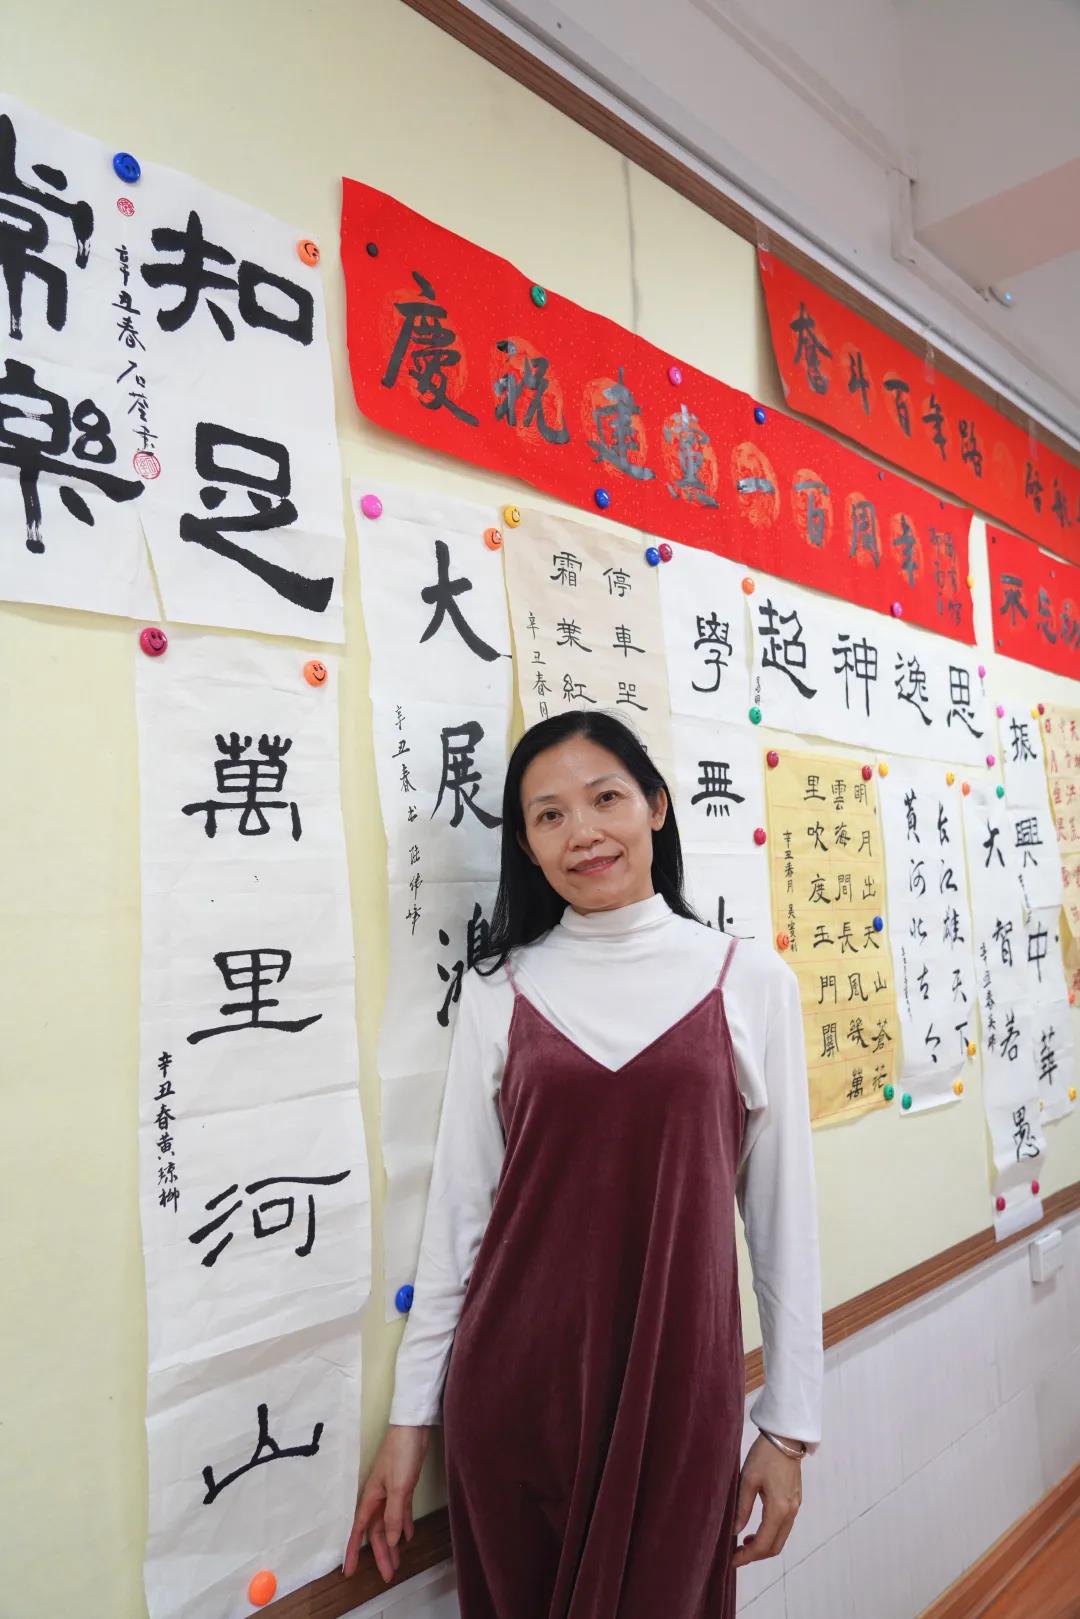 知足
常樂
辛丑春
慶祝建黨一百周年
奮斗百年路
啓航
不忘初
萬里河山
辛丑春黄琼柳
大展鴻
辛丑春书陆伟峰
停車坐
霜葉紅
辛丑春月
學無止
超神逸思
明月出天山蒼茫
雲海間長風幾萬
里吹度玉門關
辛丑春月
長江雄天下
黄河壮古今
振興中華
大智若愚